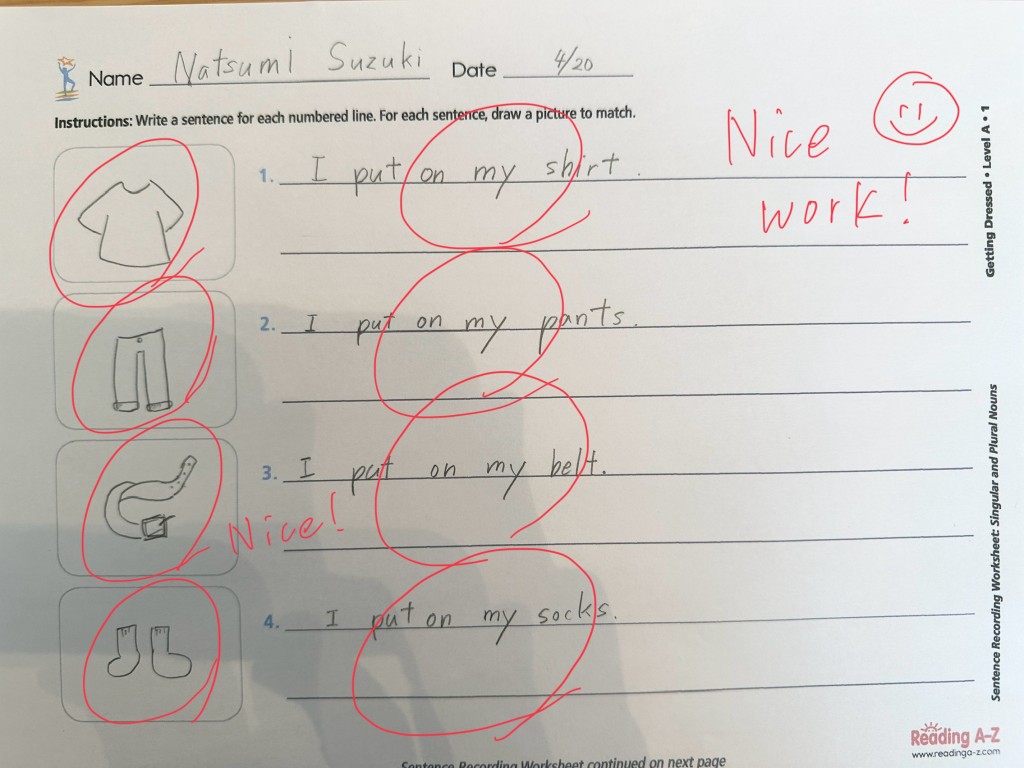 Name Natsumi Suzuki Date 4/20
Instructions: Write a sentence for each numbered line. For each sentence, draw a picture to match.
Nice
work!
1. I put on my shirt.
2. I put on my pants.
3. I put on my belt.
Nice!
4. I put on my socks.
Getting Dressed • Level A • 1
Sentence Recording Worksheet: Singular and Plural Nouns
Reading A-Z
www.readinga-z.com
Sentence Recording Worksheet continued on next page